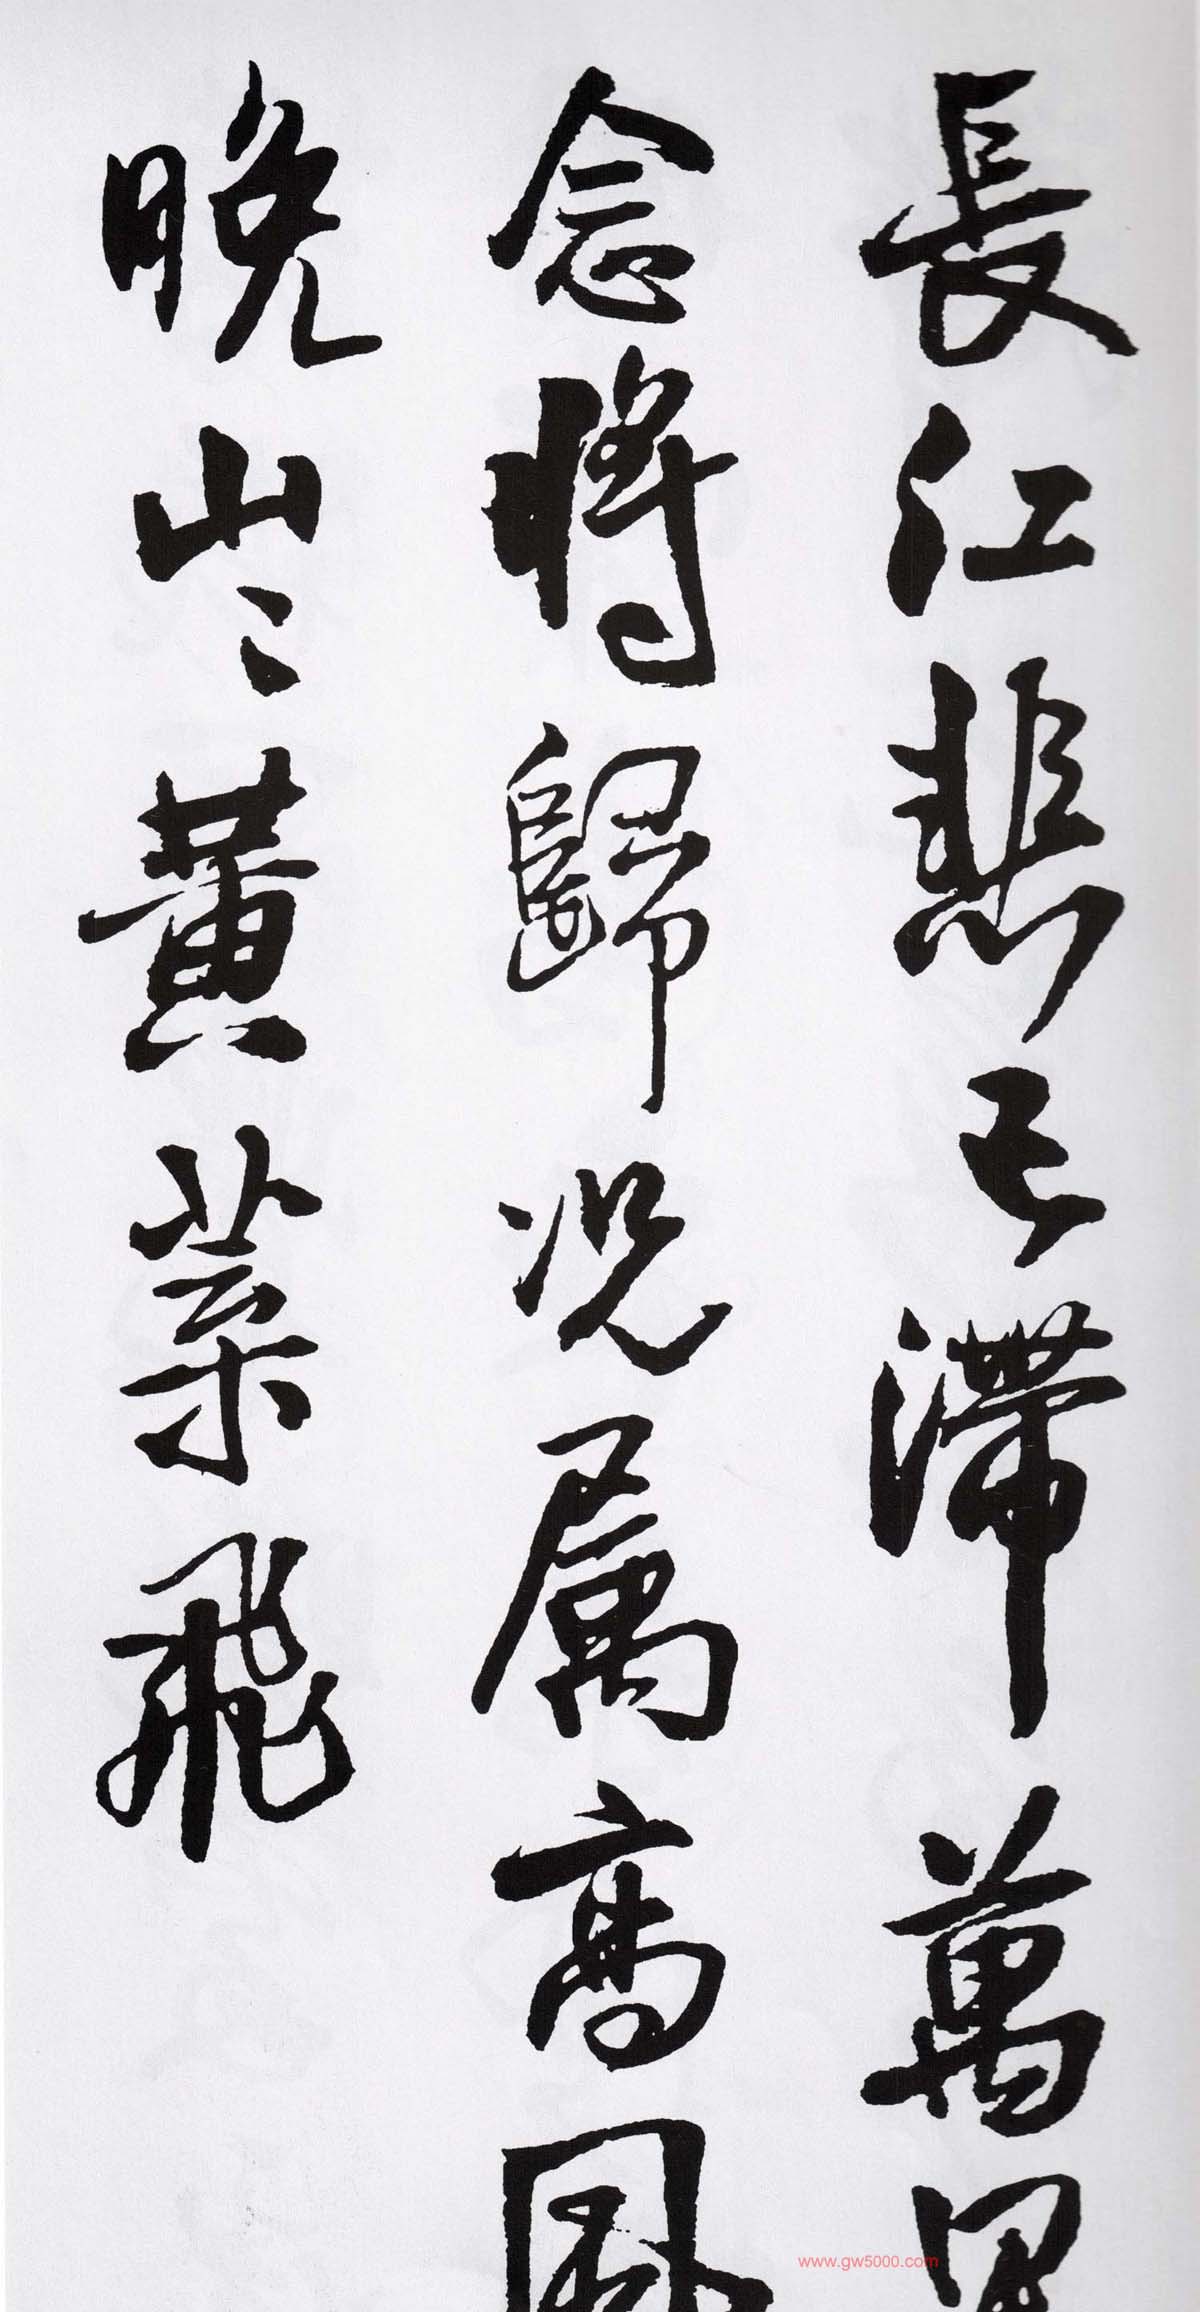 長江悲已滯萬里
念將歸况属高風
晚山〻黄葉飛
www.gw5000.com